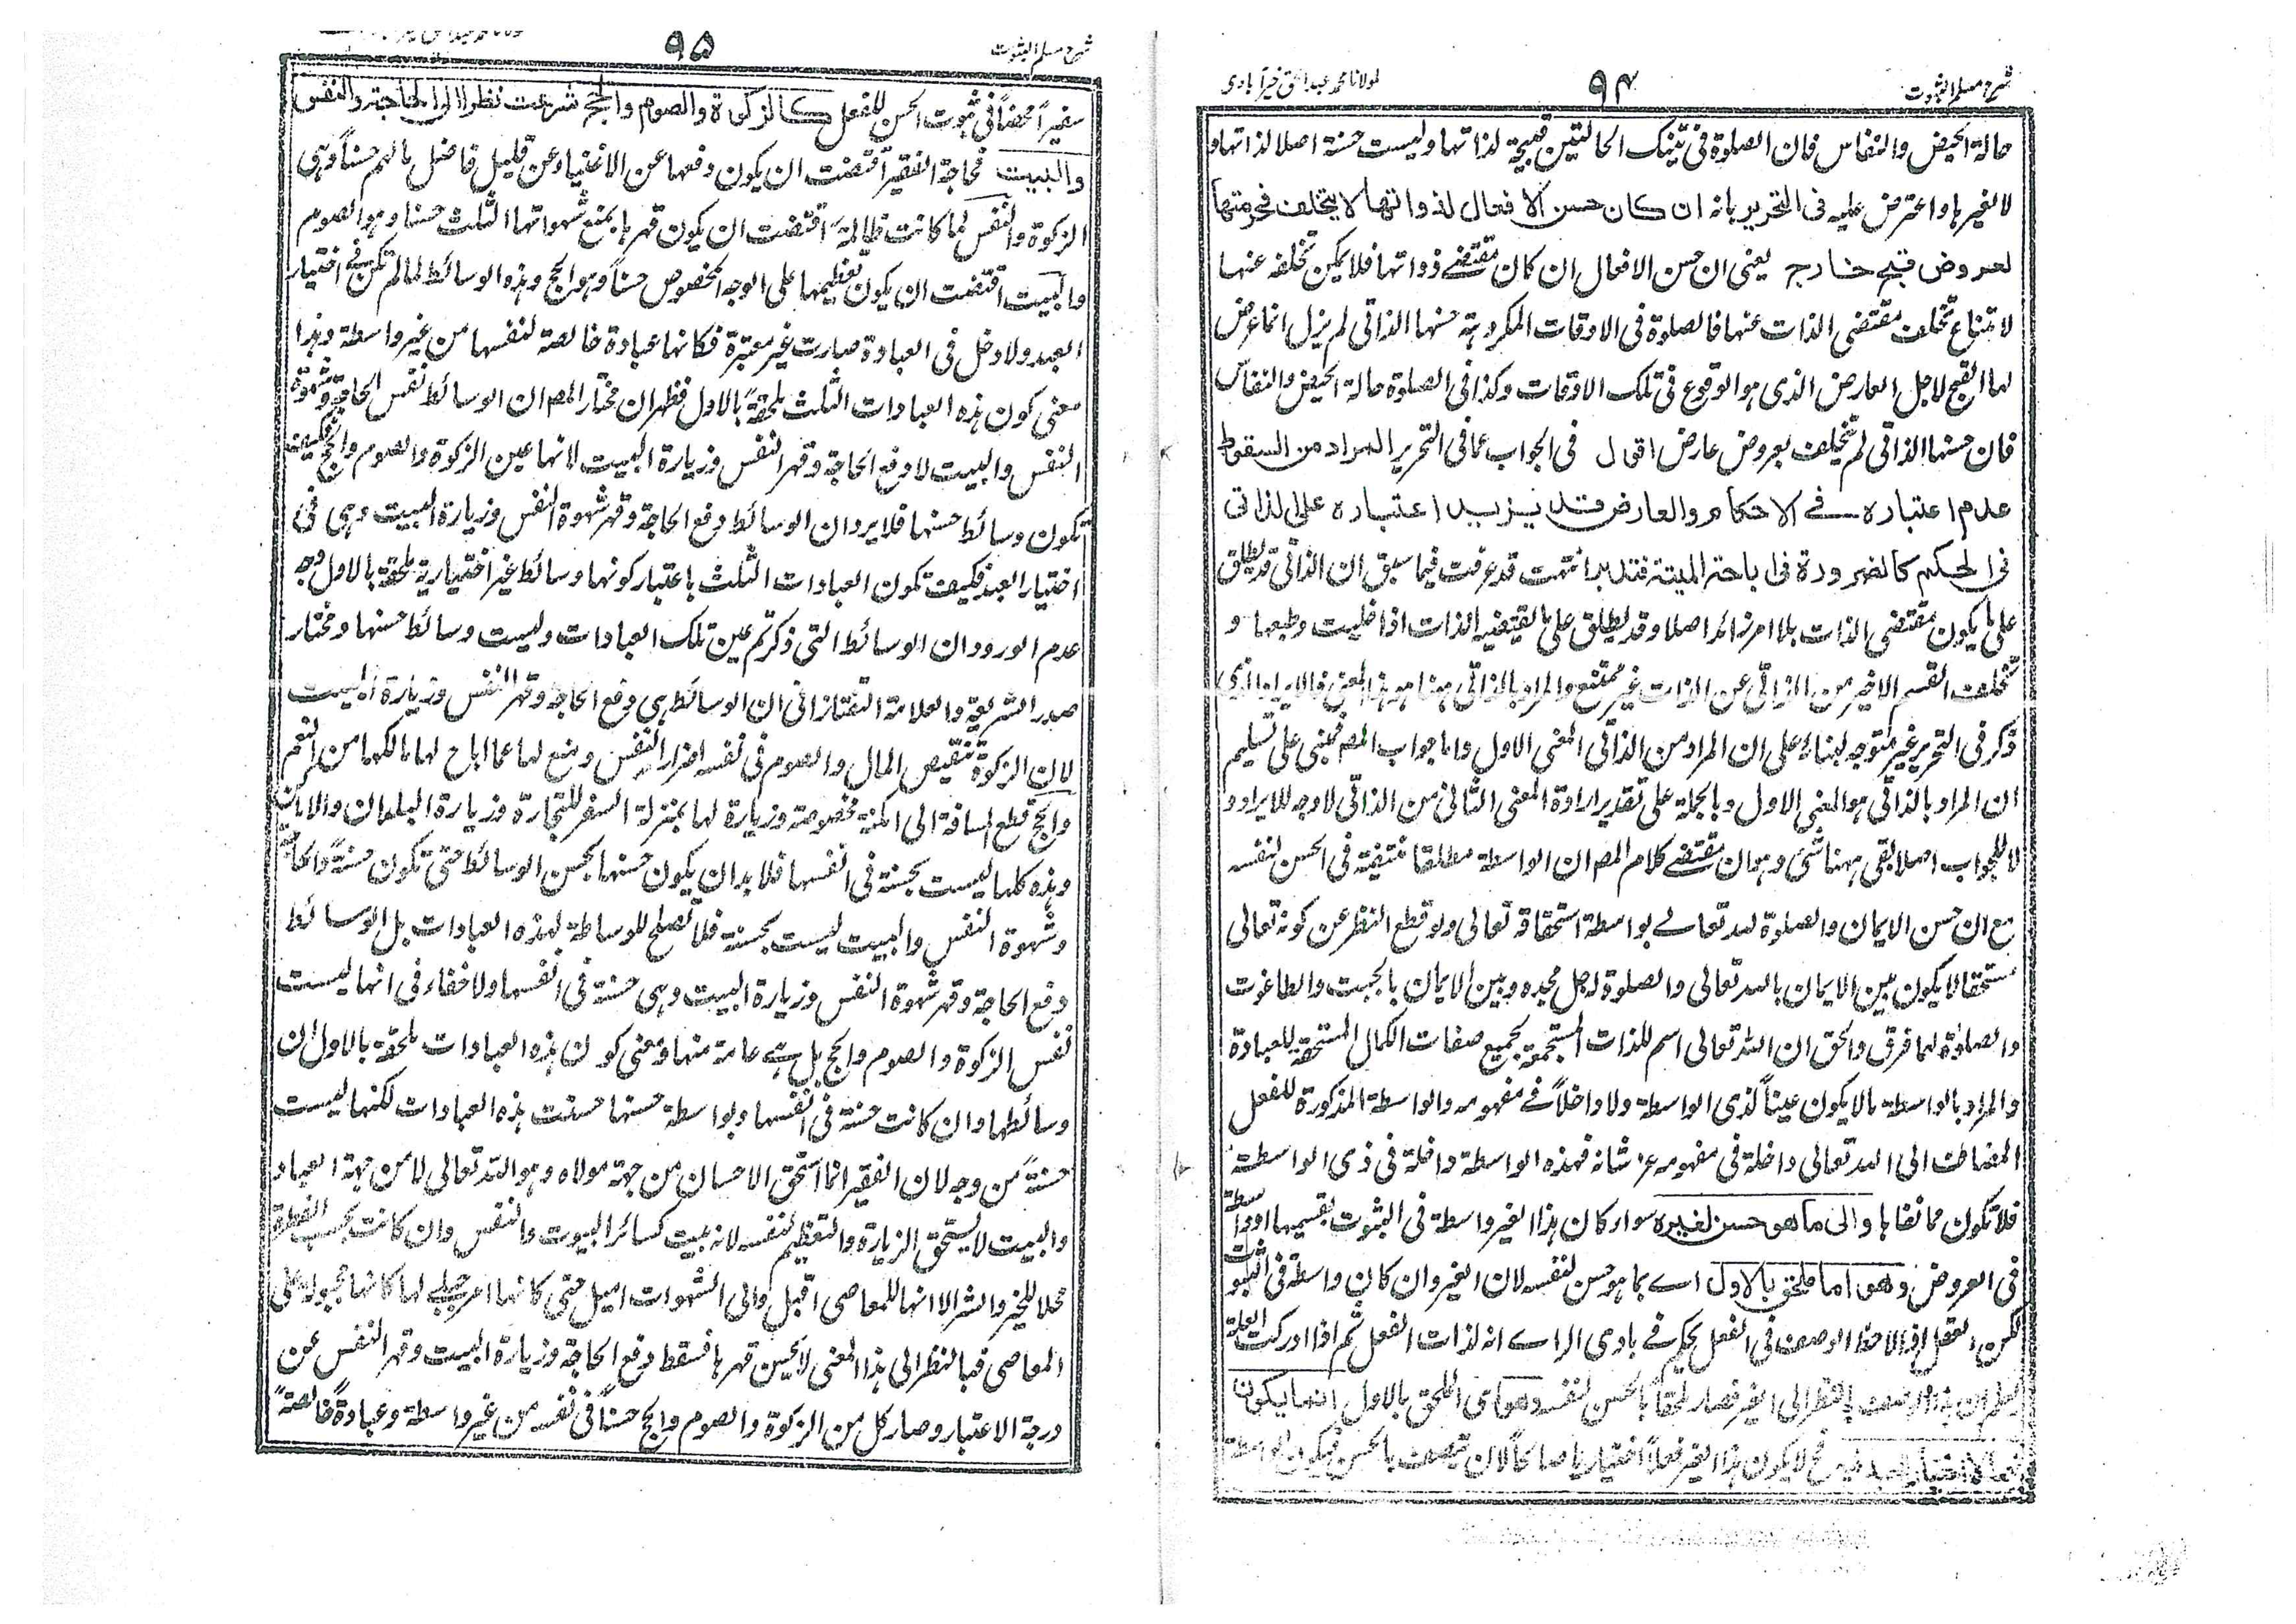 شرح مسلم الثبوت
٩٤
لمولانا محمد عبد الحق خیرآبادی
حالة الحیض والنفاس فان الصلوة فی تینک الحالتین قبیحة لذاتها ولیست حسنة اصلا لذاتها و
لا لغیرها واعترض علیه فی التحریر بانه ان کان حسن الافعال لذواتها لا یتخلف فحرمتها
لعروض قبیح خارج یعنی ان حسن الافعال ان کان مقتضے ذواتها فلا یمکن تخلفه عنها
لامتناع تخلف مقتضی الذات عنها فالصلوة فی الاوقات المکروهة حسنها الذاتی لم یزل انما عرض
لها القبح لاجل العارض الذی هو الوقوع فی تلک الاوقات وکذا فی الصلوة حالة الحیض والنفاس
فان حسنها الذاتی لم یتخلف بعروض عارض اقول فی الجواب عما فی التحریر المراد من السقوط
عدم اعتباره فے الاحکام والعارض قد یزید اعتباره علی الذاتی
فی الحکم کالضرورة فی اباحة المیتة فتدبر انتهت قد عرفت فیما سبق ان الذاتی قد یطلق
علی ما یکون مقتضی الذات بلا امر زائد اصلا وقد یطلق علی ما یقتضیه الذات اذا خلیت وطبعها و
تخلف القسم الاخیر من الذاتی عن الذات غیر ممتنع والمراد بالذاتی ههنا هو هذا المعنی فالایراد الذی
ذکر فی التحریر غیر متوجه لبناءه علی ان المراد من الذاتی المعنی الاول واما جواب المص فمبنی علی تسلیم
ان المراد بالذاتی هو المعنی الاول وبالجملة علی تقدیر ارادة المعنی الثانی من الذاتی لا وجه للایراد و
لا للجواب اصلا بقی ههنا شئ وهو ان مقتضے کلام المص ان الواسطة مطلقا منتفیة فی الحسن لنفسه
مع ان حسن الایمان والصلوة لله تعالے بواسطة استحقاقه تعالی ولو قطع النظر عن کونه تعالی
مستحقا لا یکون بین الایمان بالله تعالی والصلوة لاجل مجده وبین الایمان بالجبت والطاغوت
والصلوة لهما فرق والحق ان الله تعالی اسم للذات المستجمعة بجمیع صفات الکمال المستحقة للعبادة
والمراد بالواسطة ما لا یکون عیناً لذی الواسطة ولا داخلاً فے مفهومه والواسطة المذکورة للفعل
المضاف الی الله تعالی داخلة فی مفهومه عز شانه فهذه الواسطة داخلة فی ذی الواسطة
فلا تکون مما نفاها والی ما هو حسن لغیره سواء کان هذا الغیر واسطة فی الثبوت بقسمیها او واسطة
فی العروض وهو اما ملحق بالاول اے بما هو حسن لنفسه لان الغیر وان کان واسطة فی الثبوت
لکن العقل اذا لاحظ الوصف فی الفعل یحکم فے بادی الراے انه لذات الفعل ثم اذا ادرکت العلة
یظهر ان هذا الوصف بالنظر الی الغیر فصار ملحقاً بالحسن لنفسه وهو ای الملحق بالاول انما یکون
فیما لا اختیار للعبد فیه فح لا یکون هذا الغیر فعلاً اختیاریا صالحاً لان یتصف بالحسن فیکون الواسطة
شرح مسلم الثبوت
٩٥
سفیراً محضاً فی ثبوت الحسن للفعل کالزکوة والصوم والحج شرعت نظرا الی الحاجة والنفس
والبیت فحاجة الفقیر اقتضت ان یکون دفعها عن الاغنیاء عن قلیل فاضل مالهم حسناً وهی
الزکوة والنفس لما کانت ظالمة اقتضت ان یکون قهرها بمنع شهواتها الثلث حسنا وهو الصوم
والبیت اقتضت ان یکون تعظیمها علی الوجه المخصوص حسناً وهو الحج وهذه الوسائط لما لم تکن فے اختیار
العبد ولا دخل فی العبادة صارت غیر معتبرة فکانها عبادة خالصة لنفسها من غیر واسطة وهذا
معنی کون هذه العبادات الثلث ملحقة بالاول فظهر ان مختار المص ان الوسائط نفس الحاجة وشهوة
النفس والبیت لا دفع الحاجة وقهر النفس وزیارة البیت لانها عین الزکوة والصوم والحج فکیف
تکون وسائط حسنها فلا یرد ان الوسائط دفع الحاجة وقهر شهوة النفس وزیارة البیت وهی فی
اختیار العبد فکیف تکون العبادات الثلث باعتبار کونها وسائط غیر اختیاریة ملحقة بالاول وجه
عدم الورود ان الوسائط التی ذکرتم عین تلک العبادات ولیست وسائط حسنها ومختار
صدر الشریعة والعلامة التفتازانی ان الوسائط هی دفع الحاجة وقهر النفس وزیارة البیت
لان الزکوة تنقیص المال والصوم فی نفسه اضرار النفس ومنع لها عما اباح لها مالکها من النعم
والحج قطع المسافة الی امکنة مخصوصة وزیارة لها بمنزلة السفر للتجارة وزیارة البلدان والاماکن
وهذه کلها لیست بحسنة فی انفسها فلا بد ان یکون حسنها بحسن الوسائط حتی تکون حسنةً والحاجة
وشهوة النفس والبیت لیست بحسنة فلا تصلح للوساطة لهذه العبادات بل الوسائط
دفع الحاجة وقهر شهوة النفس وزیارة البیت وهی حسنة فی انفسها ولا خفاء فی انها لیست
نفس الزکوة والصوم والحج بل هے عامة منها ومعنی کون هذه العبادات ملحقة بالاول ان
وسائطها وان کانت حسنة فی انفسها وبواسطة حسنها حسنت هذه العبادات لکنها لیست
حسنةً من وجه لان الفقیر انما استحق الاحسان من جهة مولاه وهو الله تعالی لا من جهة العباد
والبیت لا یستحق الزیارة والتعظیم لنفسه لانه بیت کسائر البیوت والنفس وان کانت بحسب الفطرة
محلا للخیر والشر الا انها للمعاصی اقبل والی الشهوات امیل حتی کانها امر جبلے لها کانها مجبولة علی
المعاصی فبالنظر الی هذا المعنی لا یحسن قهرها فسقط دفع الحاجة وزیارة البیت وقهر النفس عن
درجة الاعتبار وصار کل من الزکوة والصوم والحج حسناً فی نفسه من غیر واسطة وعبادةً خالصةً